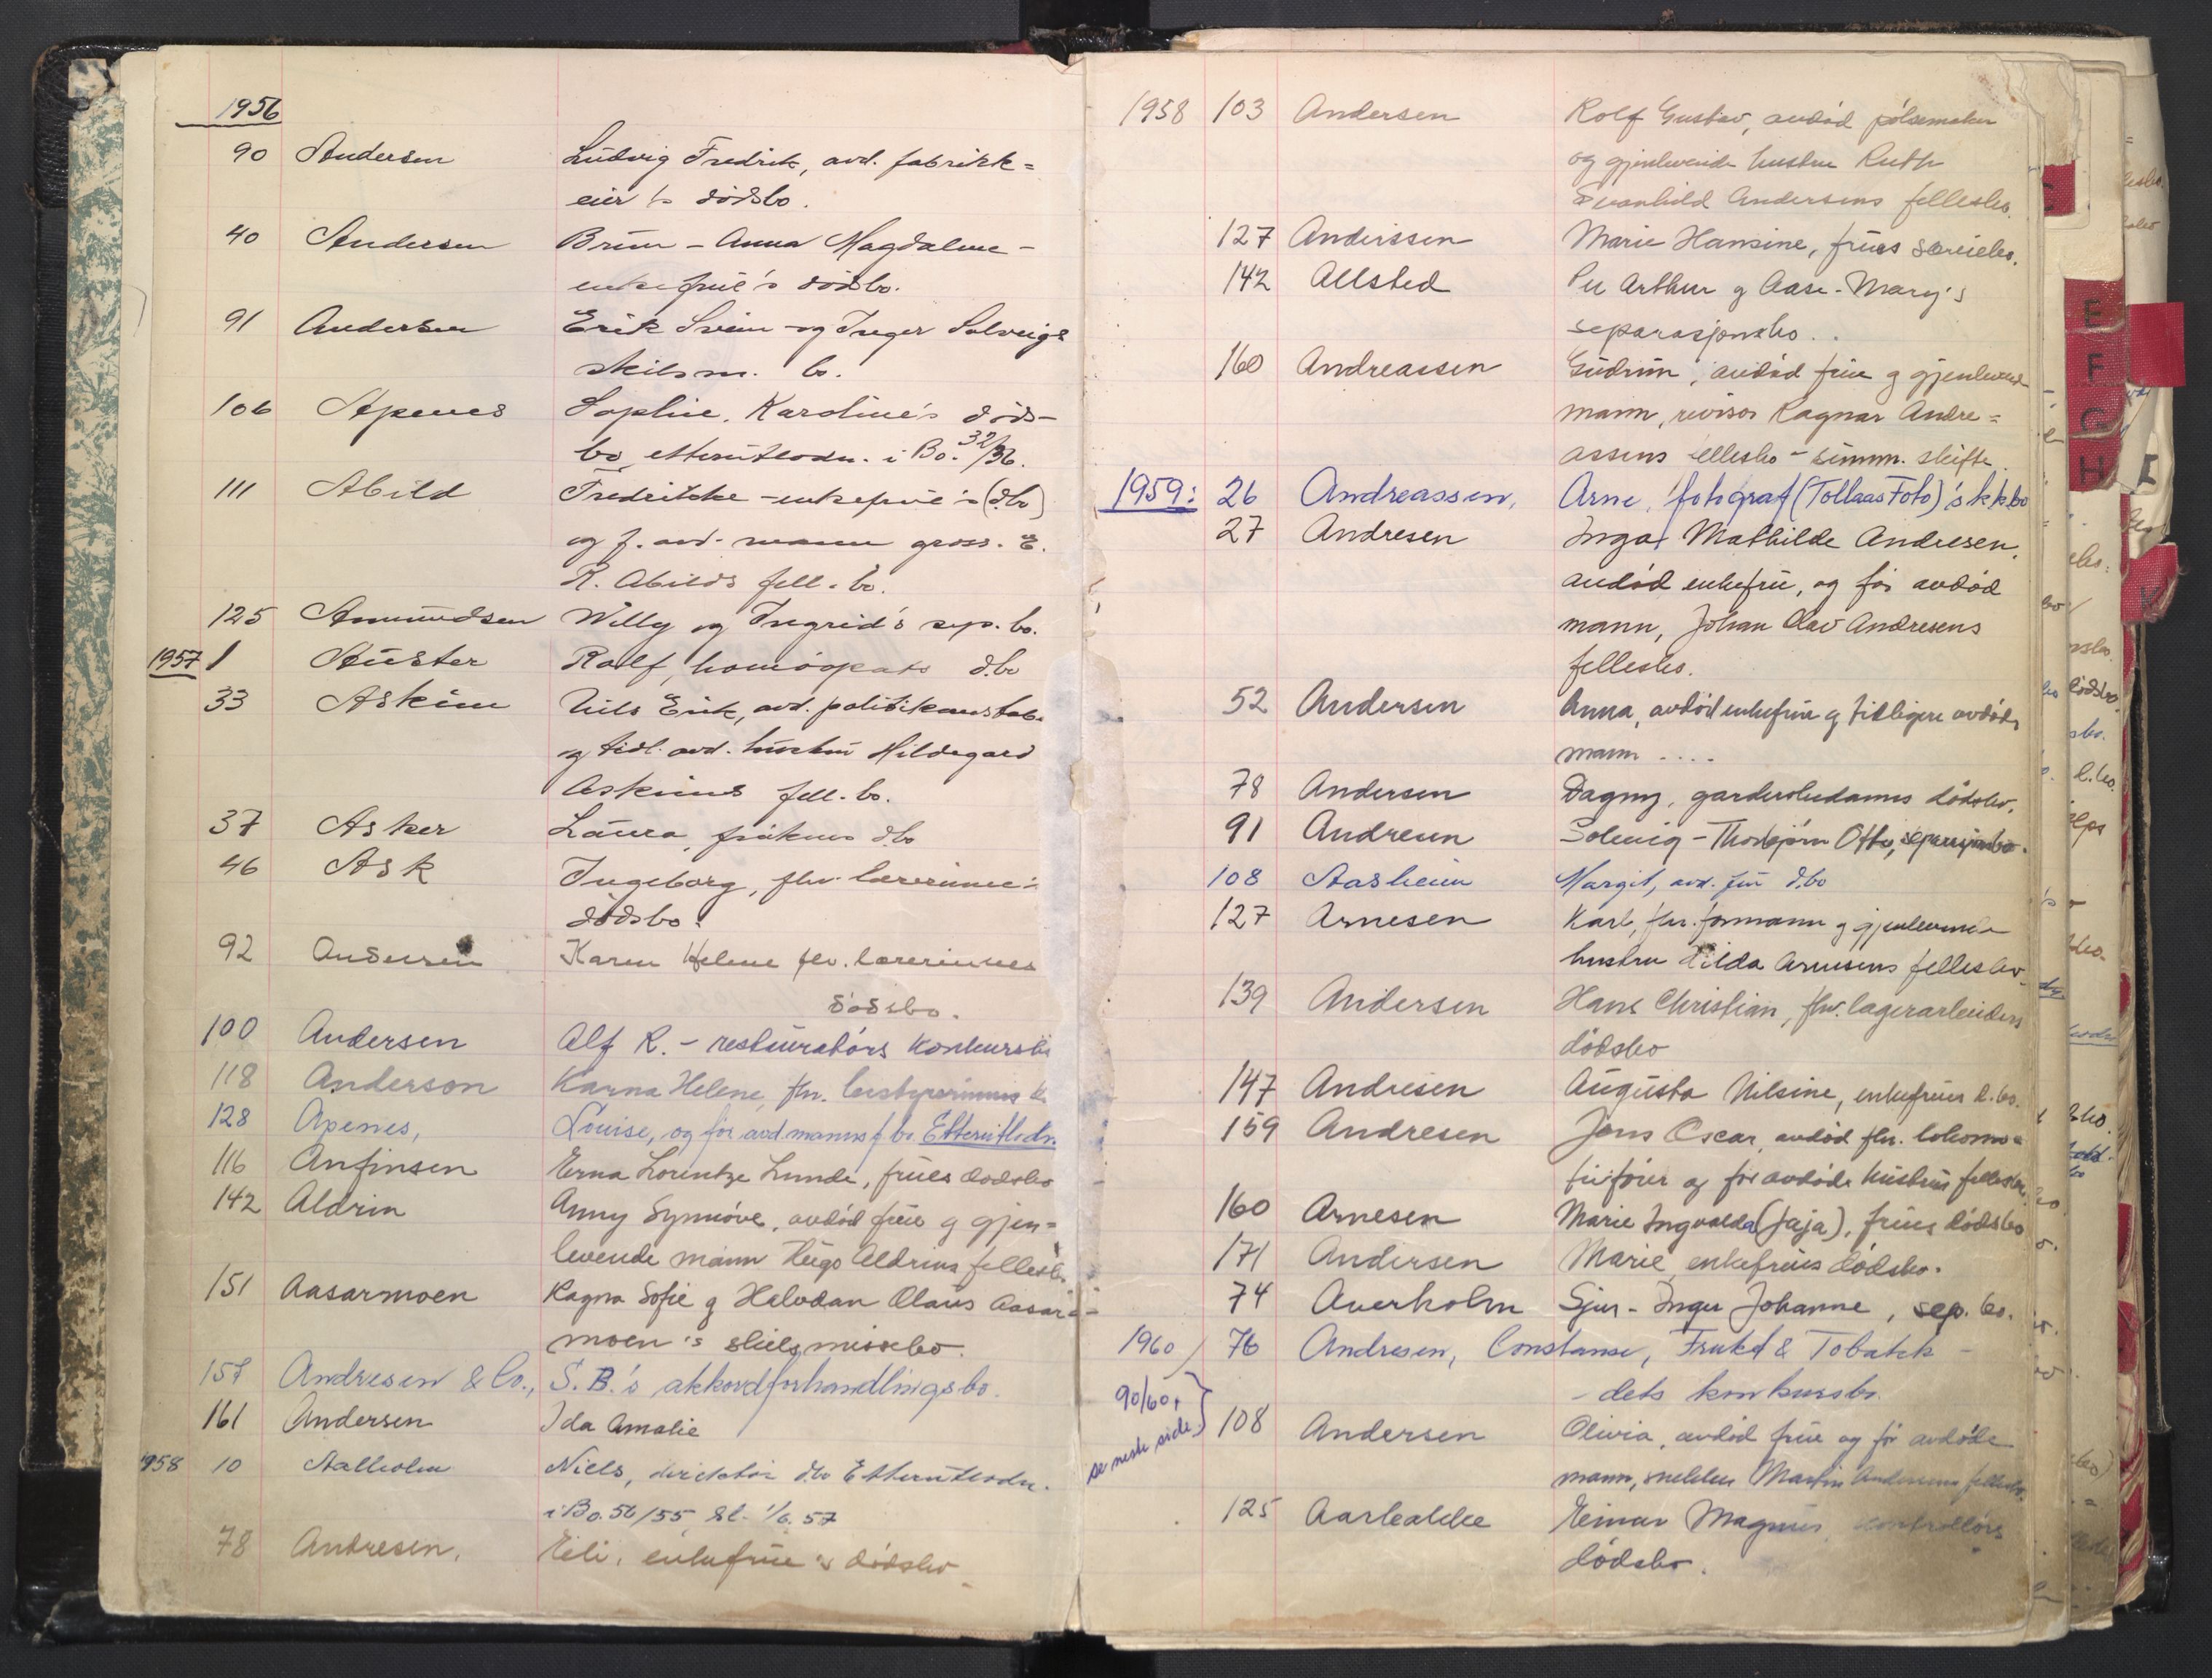 1956
90 Andersen Ludvig Fredrik, avd. fabrikk=
eier 's dødsbo.
40 Andersen Brun - Anna Magdalene -
enkefrue's dødsbo.
91 Andersen Erik Svein og Inger Solveigs
skilsm. bo.
106 Apenes Sophie, Karoline's døds-
bo, etterutlodn. i Bo. 32/36.
111 Abild Fredrikke - enkefrue's (d.bo)
og f. avd. mann gross. E.
R. Abilds fell. bo.
125 Amundsen Willy og Ingrid's sep. bo.
1957 1 Auster Rolf, homøopats d.bo
33 Askim Nils Erik, avd. politikonstab.
og tidl. avd. hustru Hildegard
Askims fell. bo.
37 Asker Laura, frøkens dbo
46 Ask Ingeborg, fhv. lærerinne's
dødsbo.
92 Andersen Karen Helene fhv. lærerinnes
dødsbo.
100 Andersen Alf R. - restauratørs konkursbo
118 Anderson Karna Helene, fhv.
128 Apenes, Louise, og før avd. manns f. bo. Etterutlodn.
116 Anfinsen Erna Lorentze Lunde, frues dødsbo
142 Aldrin Anny Synnøve, avdød frue g gjen=
levende mann Hugo Aldrins fellesbo
151 Aasarmoen Ragna Sofie g Halvdan Olaus Aasar=
moen's skilsmissebo.
157 Andresen & Co., S. B.'s akkordforhandlingsbo.
161 Andersen Ida Amalie
1958 10 Aalholm Niels, direktør dbo Etterutlodn.
i Bo. 56/55, sl. 1/6. 57
78 Andresen, Eli, enkefrue's dødsbo
1958 103 Andersen Rolf Gustav, avdød pølsemaker
og gjenlevende hustru Ruth
Svanhild Andersens fellesbo.
127 Anderssen Marie Hansine, frues særeiebo.
142 Allsted Per Arthur g Aase-Mary's
separasjonsbo.
160 Andreassen Gudrun, avdød frue g gjenlevend
mann, revisor Ragnar Andre=
assens fellesbo - summ. skifte.
1959: 26 Andreassen, Arne, fotograf (Tollaas Foto)'s k.k.bo
27 Andresen Inga Mathilde Andresen,
avdød enkefrue, og før avdød
mann, Johan Olav Andresens
fellesbo.
52 Andersen Anna, avdød enkefrue g tidligere avdøde
mann ....
78 Andersen Dagny, garderobedames dødsbo.
91 Andresen Solveig - Thorbjørn Otto, separasjonsbo.
108 Aasheim Margit, avd. frue d.bo
127 Arnesen Karl, fhv. formann g gjenlevende
hustru Hilda Arnesens fellesbo
139 Andersen Hans Christian, fhv. lagerarbeiders
dødsbo
147 Andresen Augusta Nilsine, enkefrues d.bo.
159 Andresen Jens Oscar, avdød fhv. lokomo=
tivfører og før avdøde hustrus fellesbo.
160 Arnesen Marie Ingvalda (Jaja), frues dødsbo
171 Andersen Marie, enkefrues dødsbo.
74 Averholm Sjur - Inger Johanne, sep. bo.
1960 76 Andresen, Constanse, Frukt & Tobakk -
- dets konkursbo.
90/60,
se neste side
108 Andersen Olivia, avdød frue og før avdøde
mann, snekker Martin Andersens fellesbo.
125 Aarbakke Reinar Magnus, kontrollørs
dødsbo.
E
F
G
H
I
K